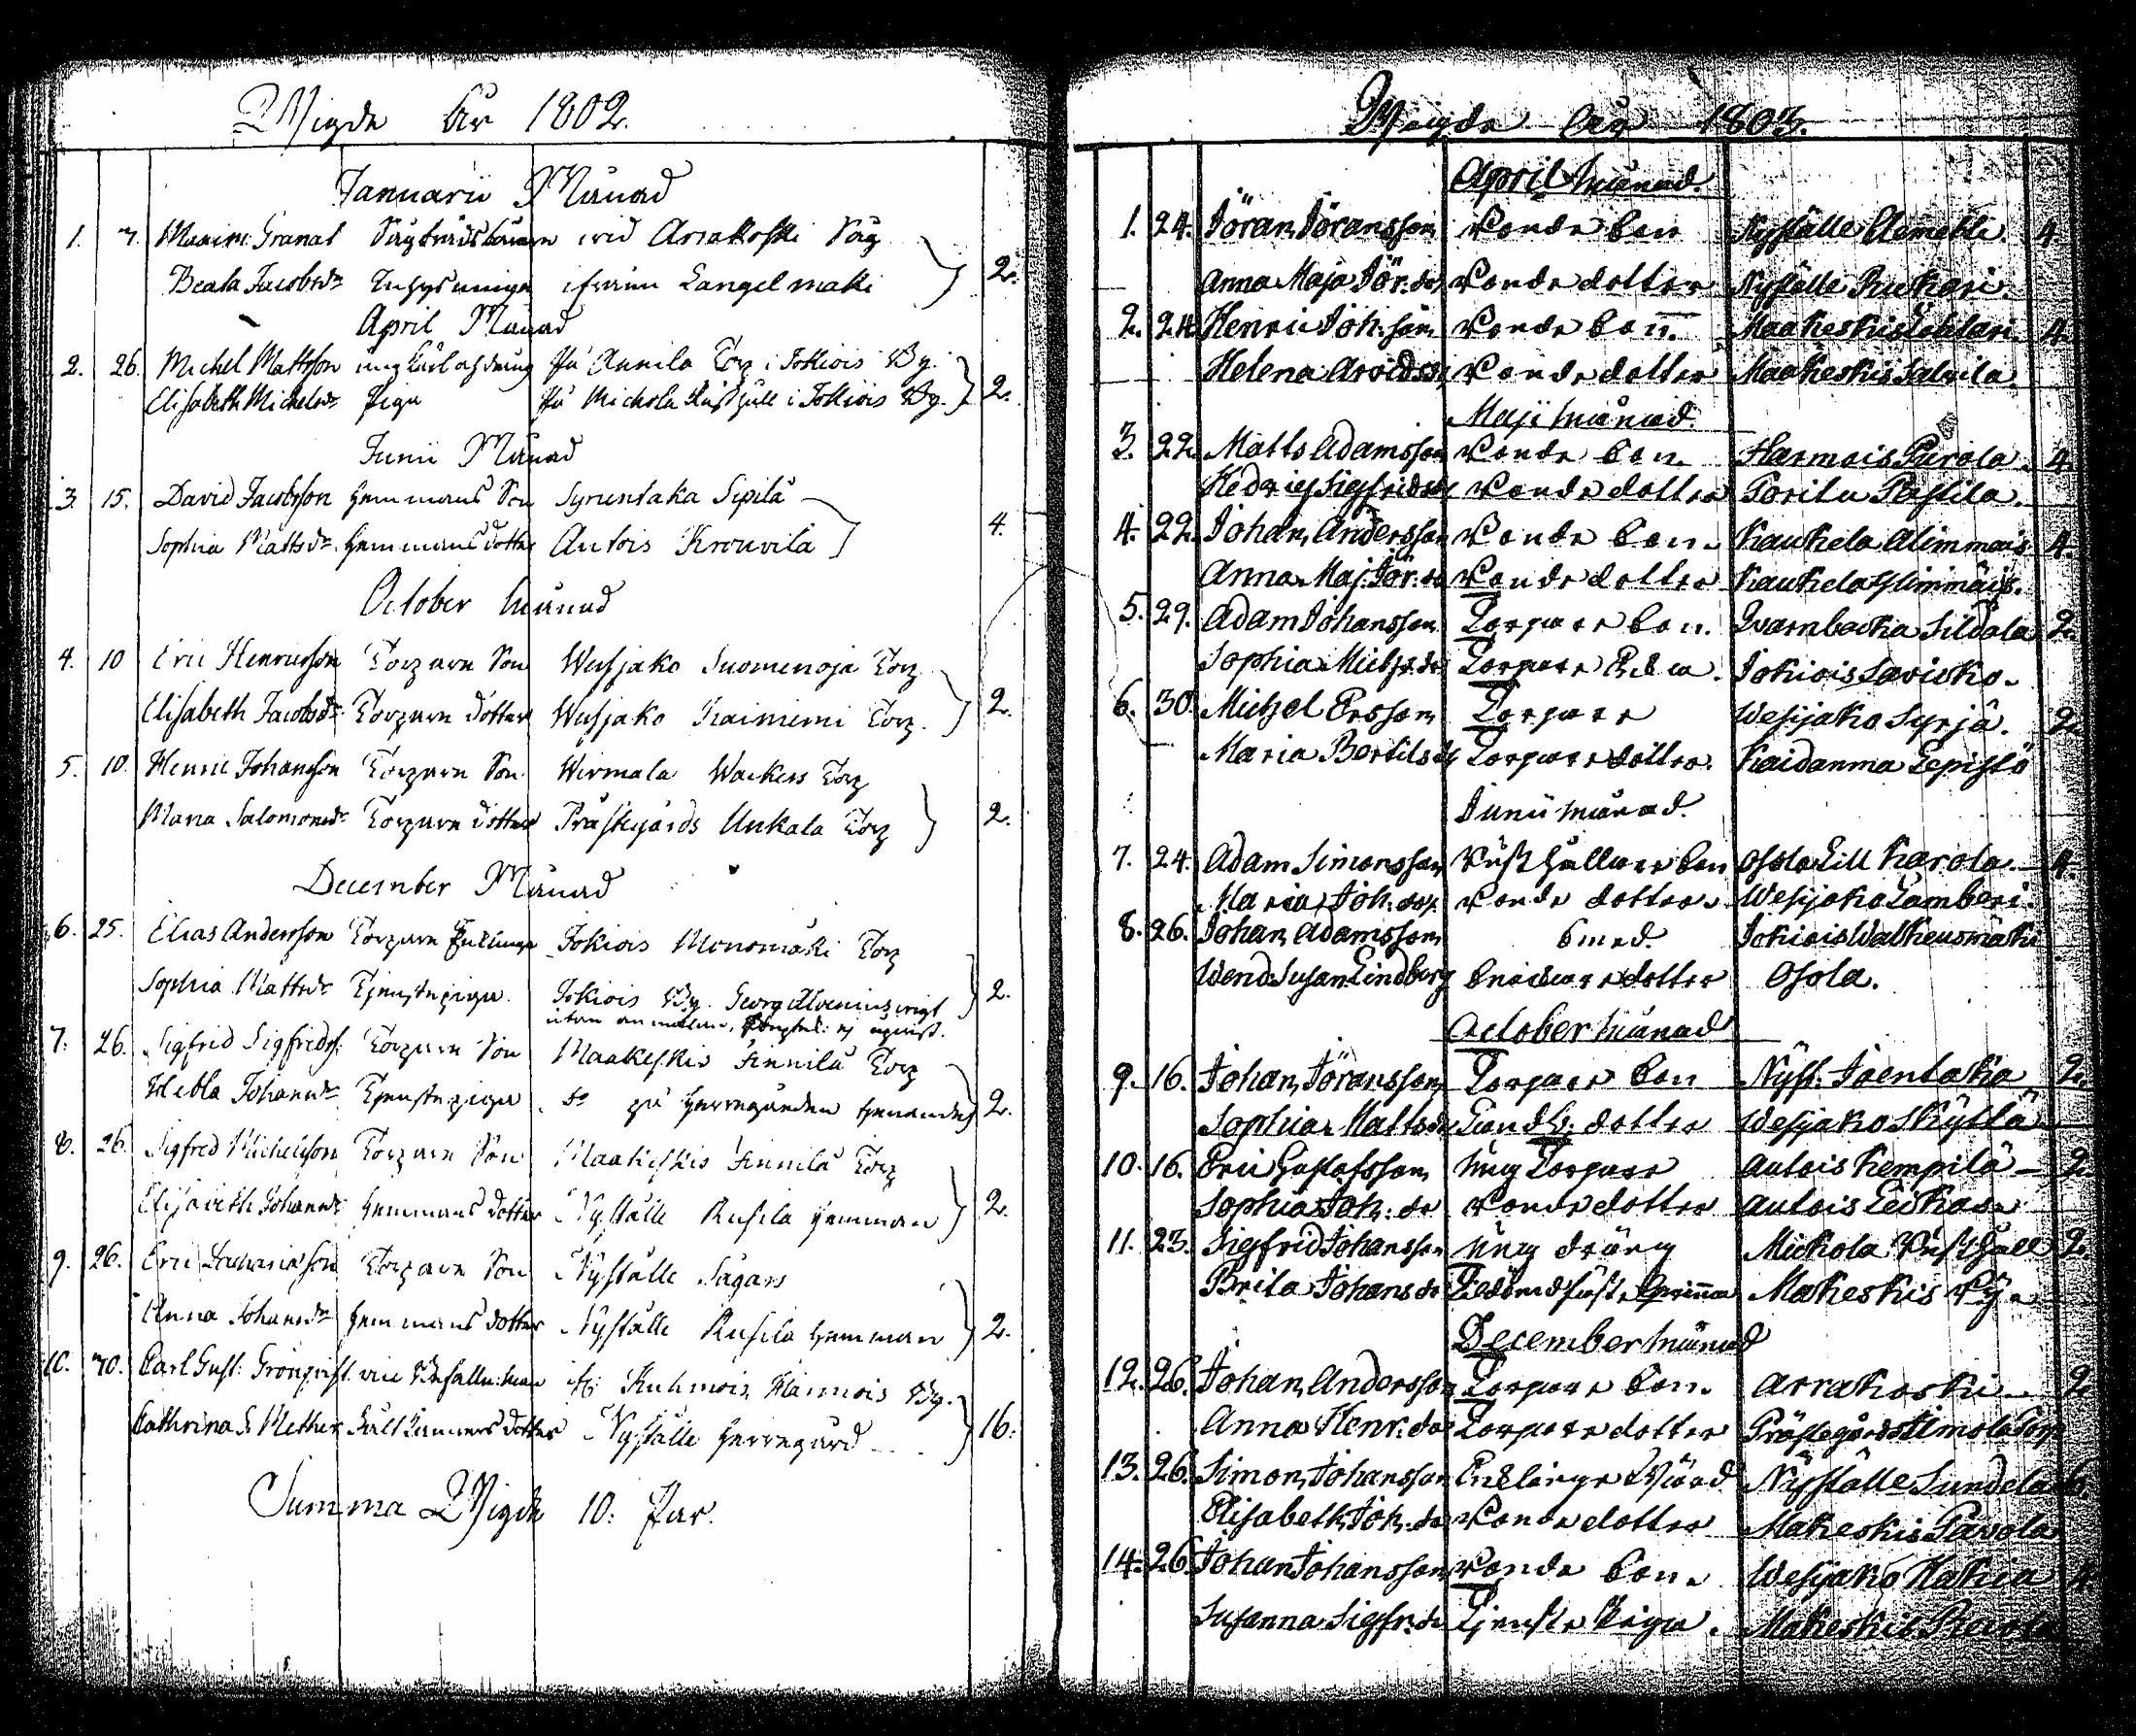 Wigde År 1802.
Januarii Månad
1. 7. Maxim: Granat Sågbrädsbärare wid Arrakoski Såg
Beata Jacobsdr Inhyses ifrån Längelmäki 2.
April Månad
2. 26. Michel Mattsson ung Karl och dräng på Annila Torp i Jokiois By.
Elisabeth Michelsdr Piga på Michola Rusthåll i Jokiois By. 2.
Junii Månad
3. 15. David Jacobsson Hemmans Son Syrentaka Sipilä
Sophia Mattsdr Hemmans dotter Autois Krouvila 4.
October Månad
4. 10 Eric Henricsson Torpare Son Wesijako Suomenoja Torp
Elisabeth Jacobsdr Torpare dotter Wesijako Kainiemi Torp. 2.
5. 10. Henric Johansson Torpare Son Wirmala Wackers Torp
Maria Salomonsdr Torpare dotter Prästegårds Unkala Torp 2.
December Månad
6. 25. Elias Andersson Torpare Enkling Jokiois Monomäki Torp
Sophia Mattsdr Tjenstepiga Jokiois By. Georg Alvenius wigt 2.
utan
7. 26. Sigfrid Sigfrids: Torpare Son Maakeskis Annila Torp
Hebla Johansdr Tjenstepiga do på Herregården 2.
8. 26. Sigfred Michelsson Torpare Son Maakeskis Annila Torp
Elisabeth Johansdr Hemmans dotter Nyställe Rusila Hemman 2.
9. 26. Eric Zachariasson Torpare Son Nyställe Sagars
Anna Johansdr Hemmans dotter Nyställe Rusila Hemman 2.
10. 30. Carl Gust: Grönqvist vice Befalln:man if: Kuhmois Harmois By.
Cathrina S Mether Fältkamrers dotter Nyställe Herregård 16.
Summa Wigde 10. Par.
Wigde År 1803.
April Månad.
1. 24. Jöran Jöransson Bonde Son Nyställe Clemetti. 4.
Anna Maja Jör:do Bonde dotter Nyställe Ruckari.
2. 24. Henric Joh:son Bonde Son. Maakeskis Lehtari. 4.
Helena Arvidsdr Bonde dotter Maakeskis Salvila.
Maji Månad.
3. 22. Matts Adamsson Bonde Son. Harmois Parola. 4.
Hedvig Sigfridsdr Bonde dotter Torittu Pastila.
4. 22. Johan Andersson Bonde Son. Kaukela Alimmais 4.
Anna Maj: Jör:do Bonde dotter Kaukela Ylimmäis.
5. 29. Adam Johansson Torpare Son. Qvarnbacka Sildala 2.
Sophia Mich:do Torpare Enka. Jokiois Savisko.
6. 30. Michel Ersson Torpare Wesijako Syrjä. 2.
Maria Bertilsdr Torpare dotter. Kaidanma Lepistö
Junii Månad.
7. 24. Adam Simonsson Rusthållare Son Osola Lill Karola. 4.
Maria Joh:dor. Bonde dotter. Wesijako Lamberi.
8. 26. Johan Adamsson Smed. Jokiois Walkeusmäki
Wend: Susan: Lindberg Snickare dotter Osola.
October Månad
9. 16. Johan Jöransson Torpare Son Nyst. Joentaka 2.
Sophia Mattsdr Landb: dotter Wesijako Skyttä
10. 16. Eric Gustafsson Ung Torpare Autois Kempilä 2.
Sophia Joh:do Bonde dotter Autois Leikas.
11. 23. Sigfrid Johansson Ung dräng Mickola Rusthåll 2.
Brita Johansdo Qvinna Makeskis By.
December Månad
12. 26. Johan Andersson Torpare Son. Arrakoski 2.
Anna Henr:do Torpare dotter Prästegårds Simola Torp
13. 26. Simon Johansson Enkling Nyställe Sundela 6.
Elisabeth Joh:do Bonde dotter Makeskis Pavola
14. 26. Johan Johansson Bonde Son. Wesijako Hakia 4.
Susanna Sigfr:do Tjenste Piga. Makeskis